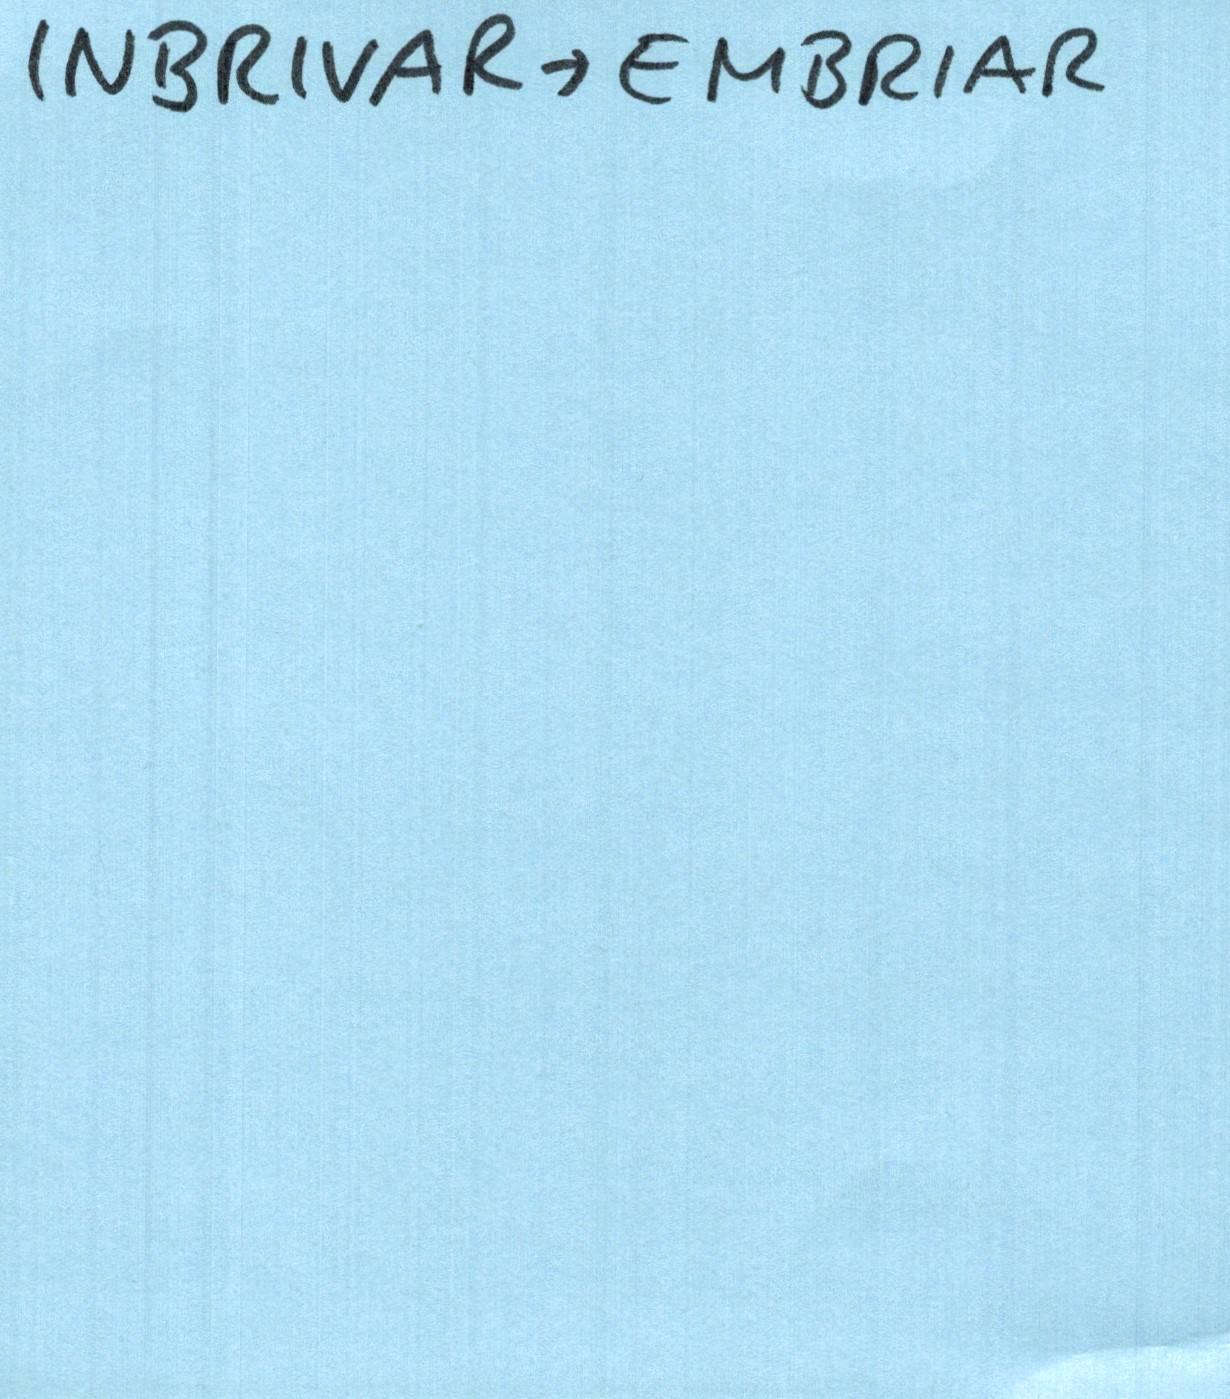 INBRIVAR → EMBRIAR